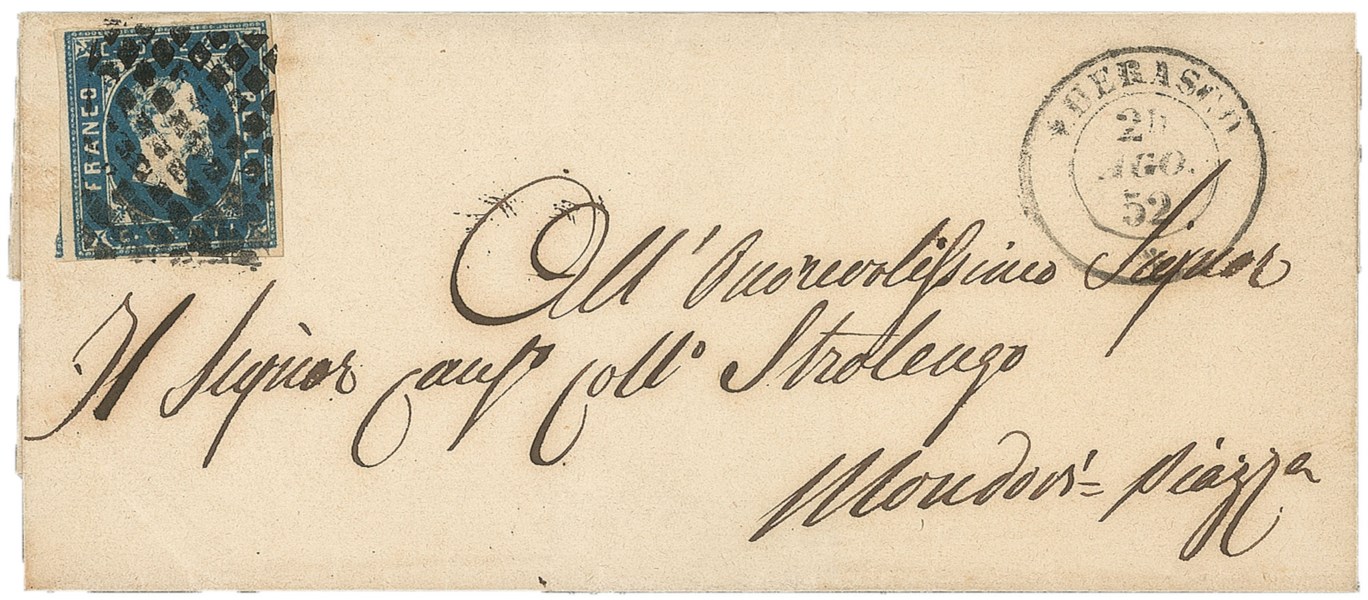 C. VENTI
FRANCO
BOLLO
C. VENTI
CHERASCO
AGO.
52
All' Onorevolissimo Signor
Il Signor Caus.º Coll.º Strolengo
Mondovì = Piazza